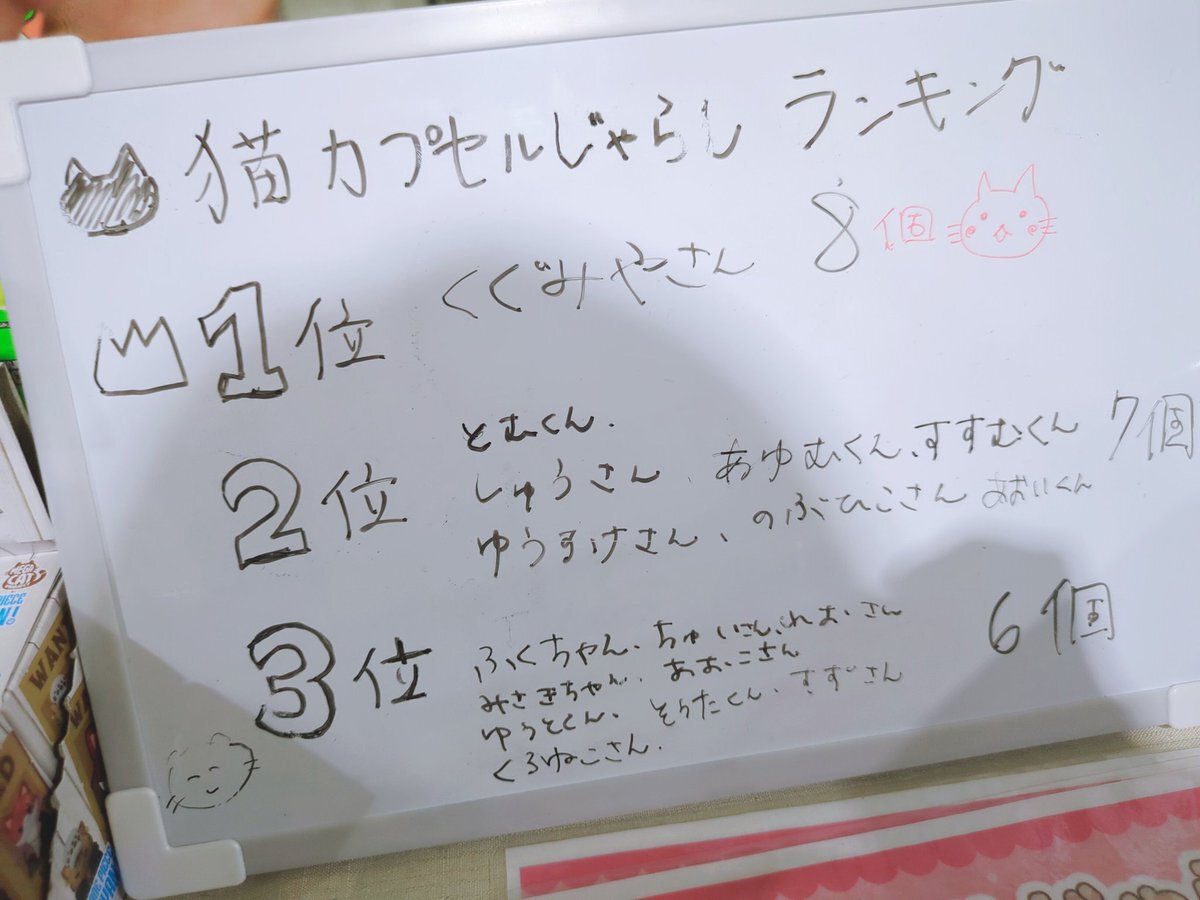 猫カプセルじゃらし ランキング
1位 くぐみやさん 8個
2位 とむくん.
しゅうさん、あゆむくん、すすむくん 7個
ゆうすけさん、のぶひこさん あおいくん
3位 ふくちゃん、ちゅいさん、れおさん 6個
みさきちゃん、あおこさん
ゆうとくん、そうたくん、すずさん
くろねこさん.
MEGA CAT
WAN